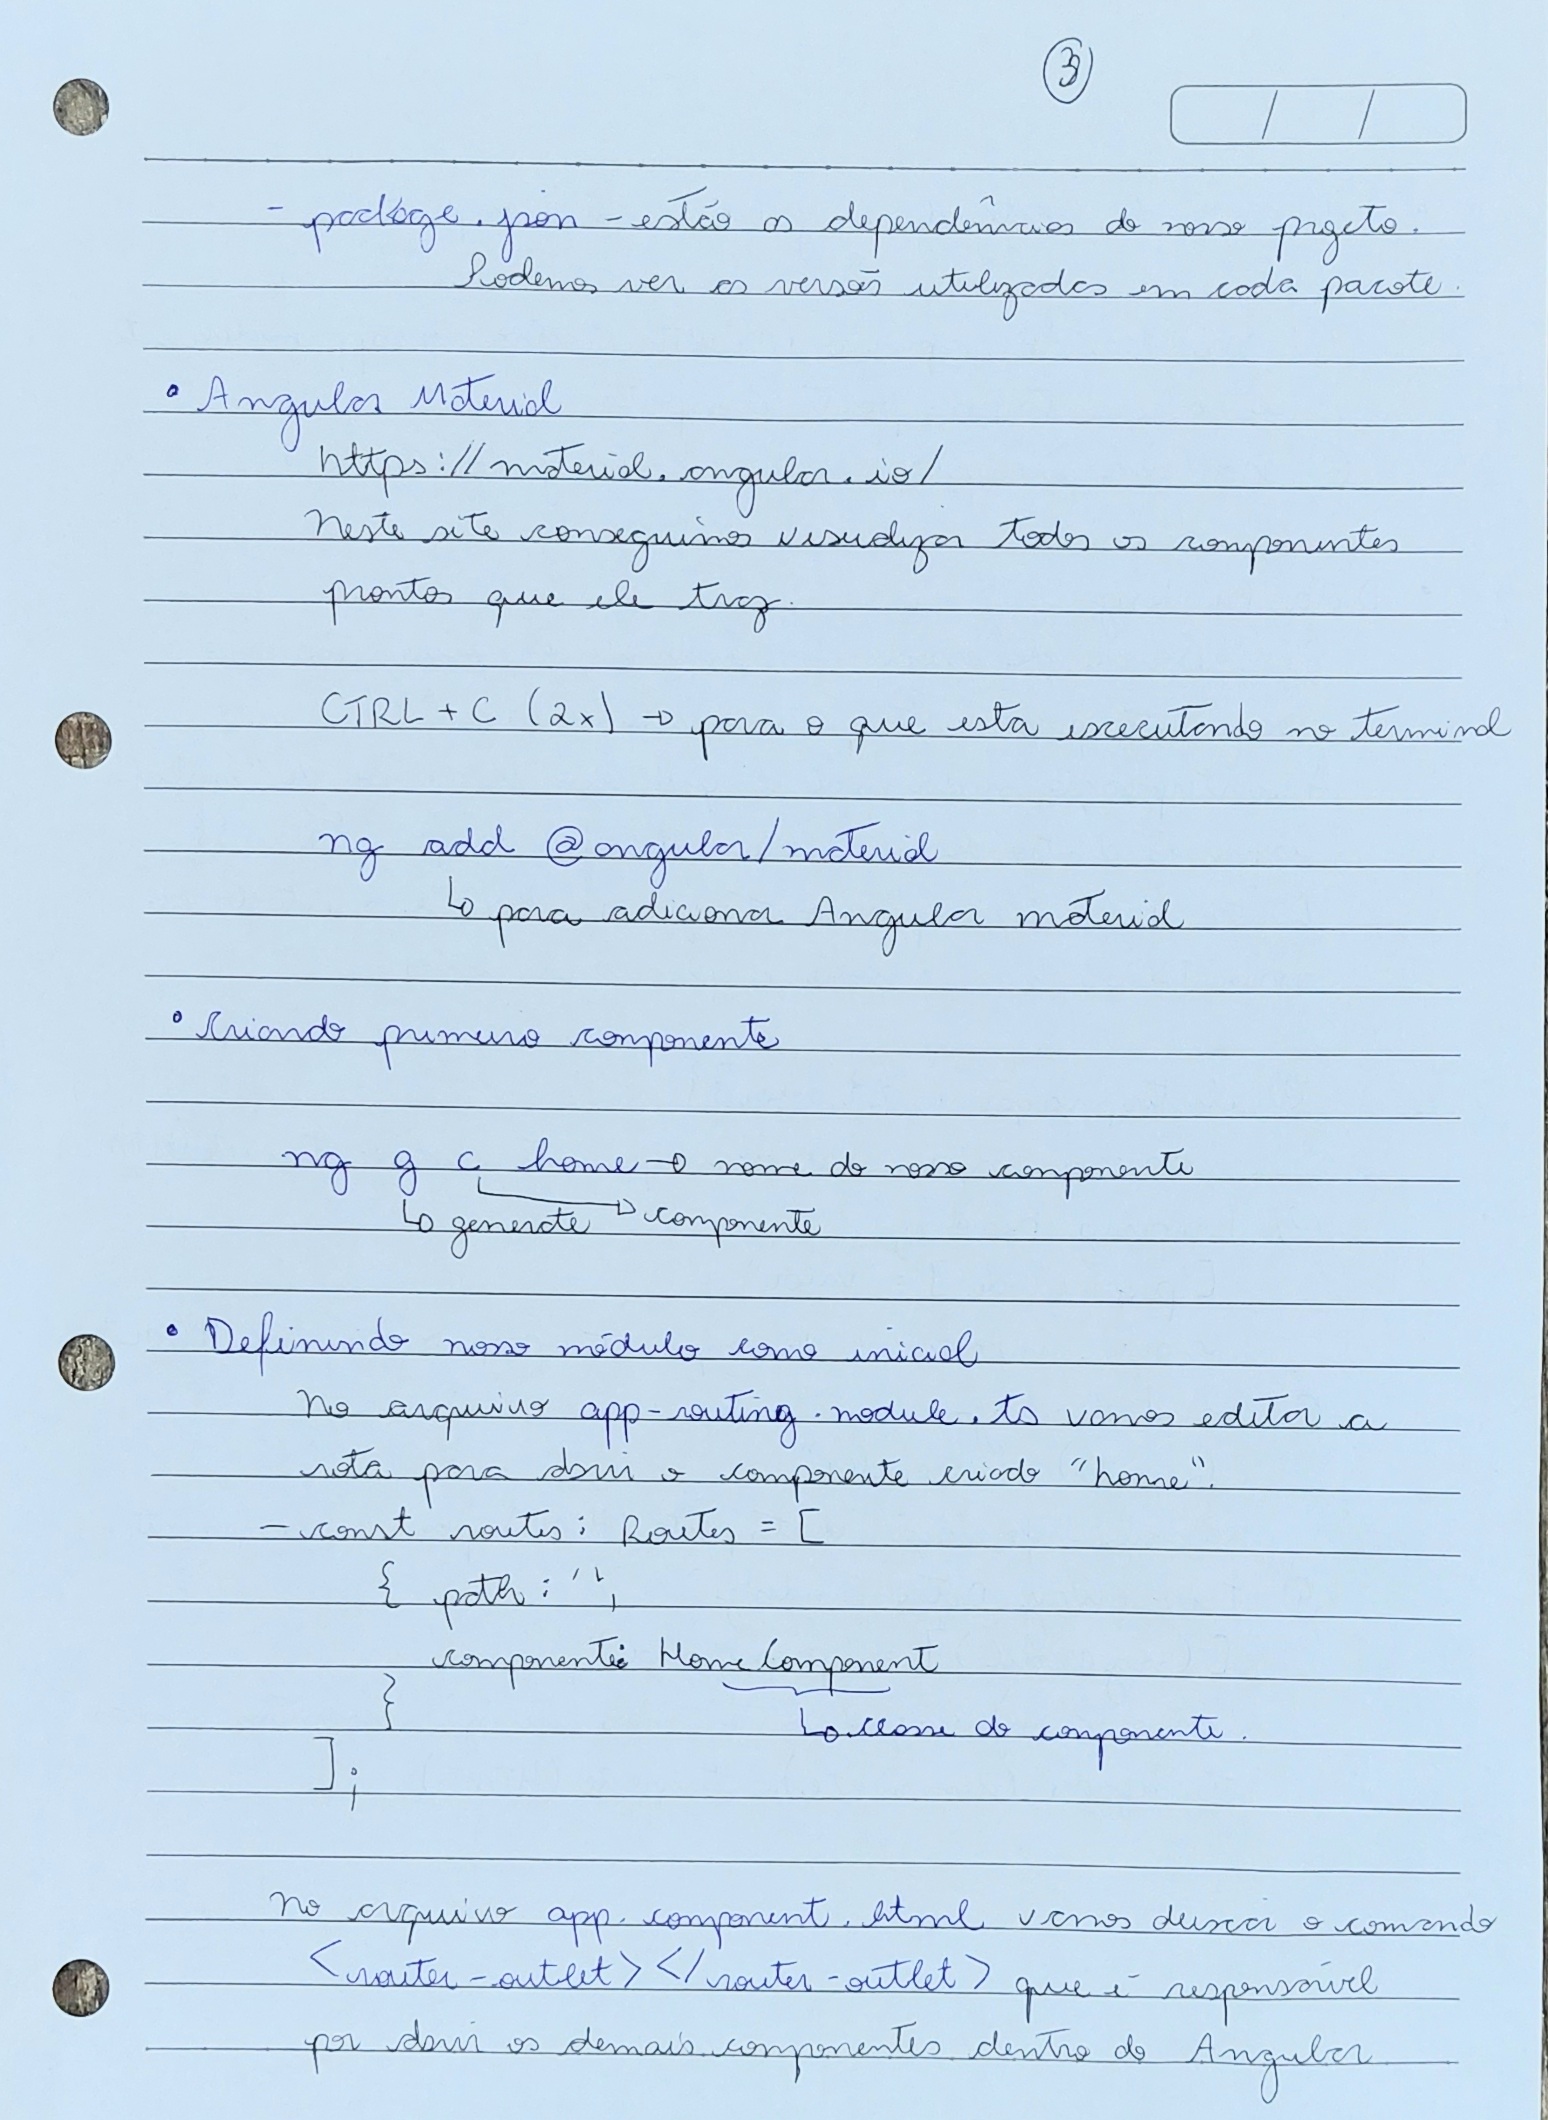 3
/ /
- package.json - estão as dependências do nosso projeto.
Podemos ver as versão utilizadas em cada pacote.
• Angular Material
https://material.angular.io/
Neste site conseguimos visualizar todos os componentes
prontos que ele traz.
CTRL + C (2x) → para o que esta executando no terminal
ng add @angular/material
↳ para adicionar Angular material
• Criando primeiro componente
ng g c home → nome do nosso componente
↳ generate → componente
• Definindo nosso módulo como inicial
No arquivo app-routing.module.ts vamos editar a
rota para abrir o componente criado "home".
- const routes: Routes = [
{ path: '',
componente: HomeComponent
}
↳ classe do componente.
];
No arquivo app.component.html vamos deixar o comando
<router-outlet></router-outlet> que é responsável
por abrir os demais componentes dentro do Angular